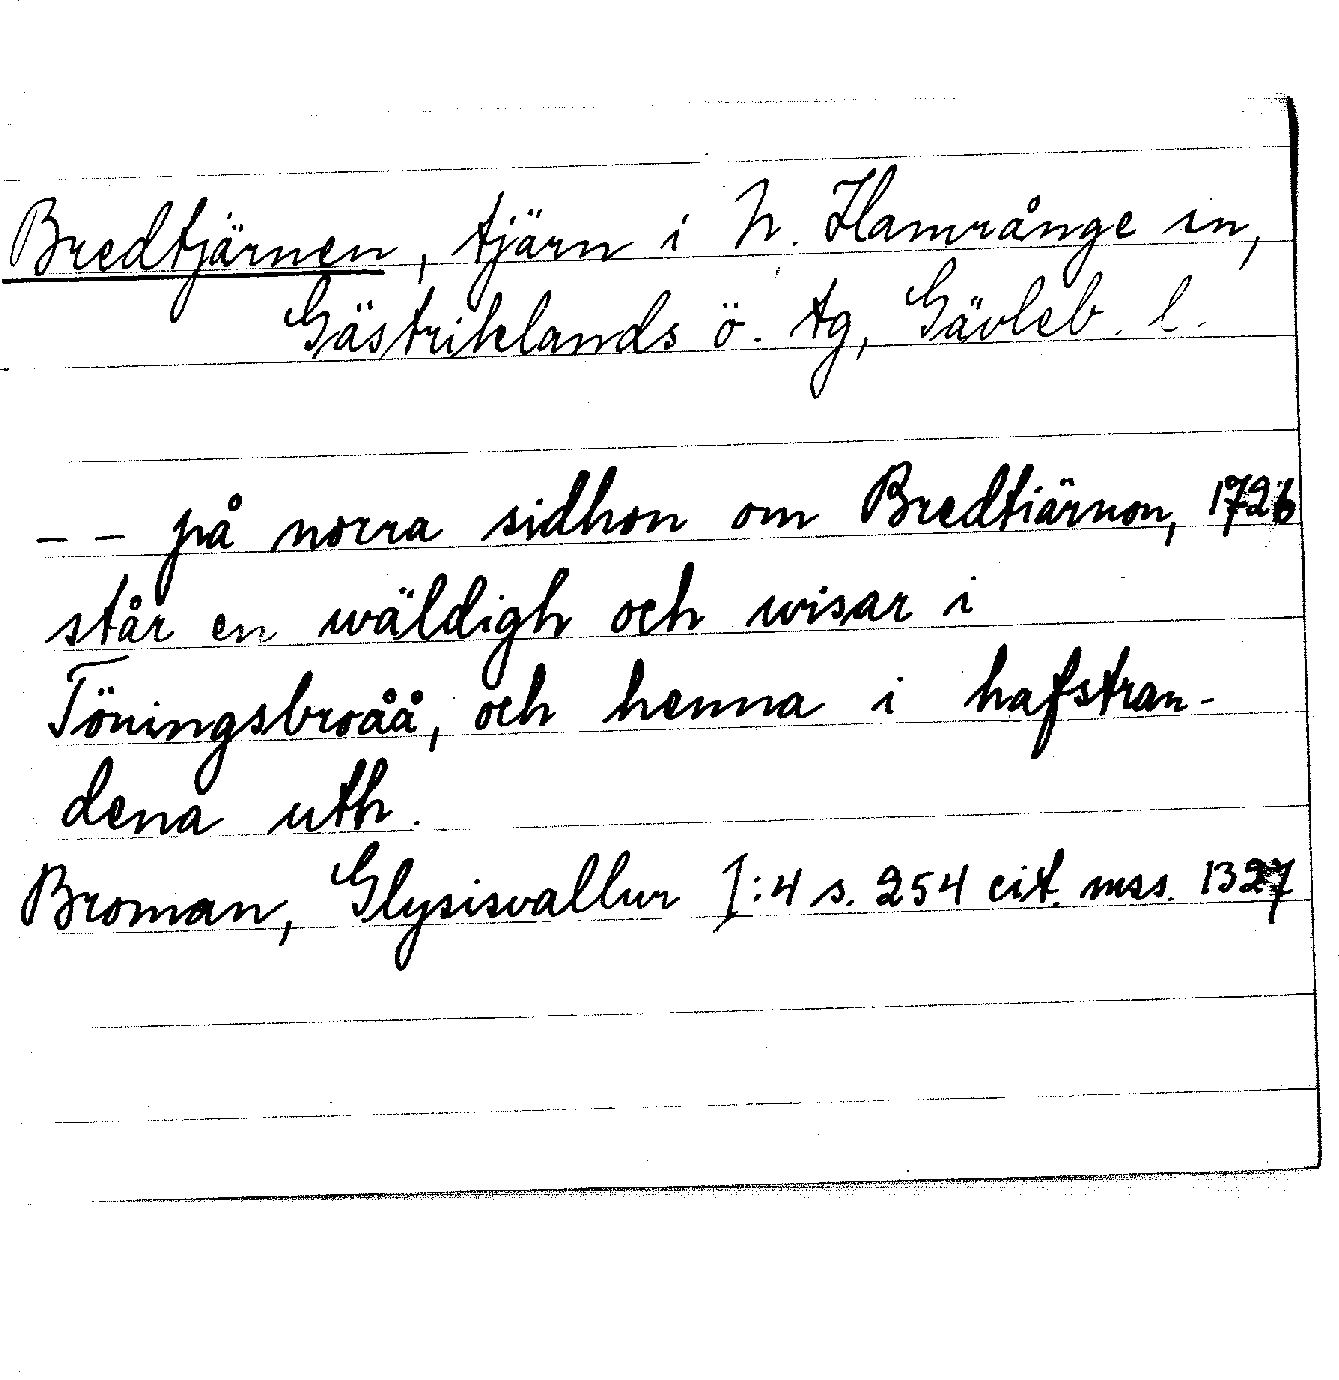 Bredtjärnen, tjärn i N. Hamrånge sn,
Gästriklands ö. tg, Gävleb. l.
– – på norra sidhon om Bredtiärnon, 1726
står en wäldigh och wisar i
Töningsbroåå, och henna i hafstran-
dena uth.
Broman, Glysisvallur I:4 s. 254 cit. mss. 1327